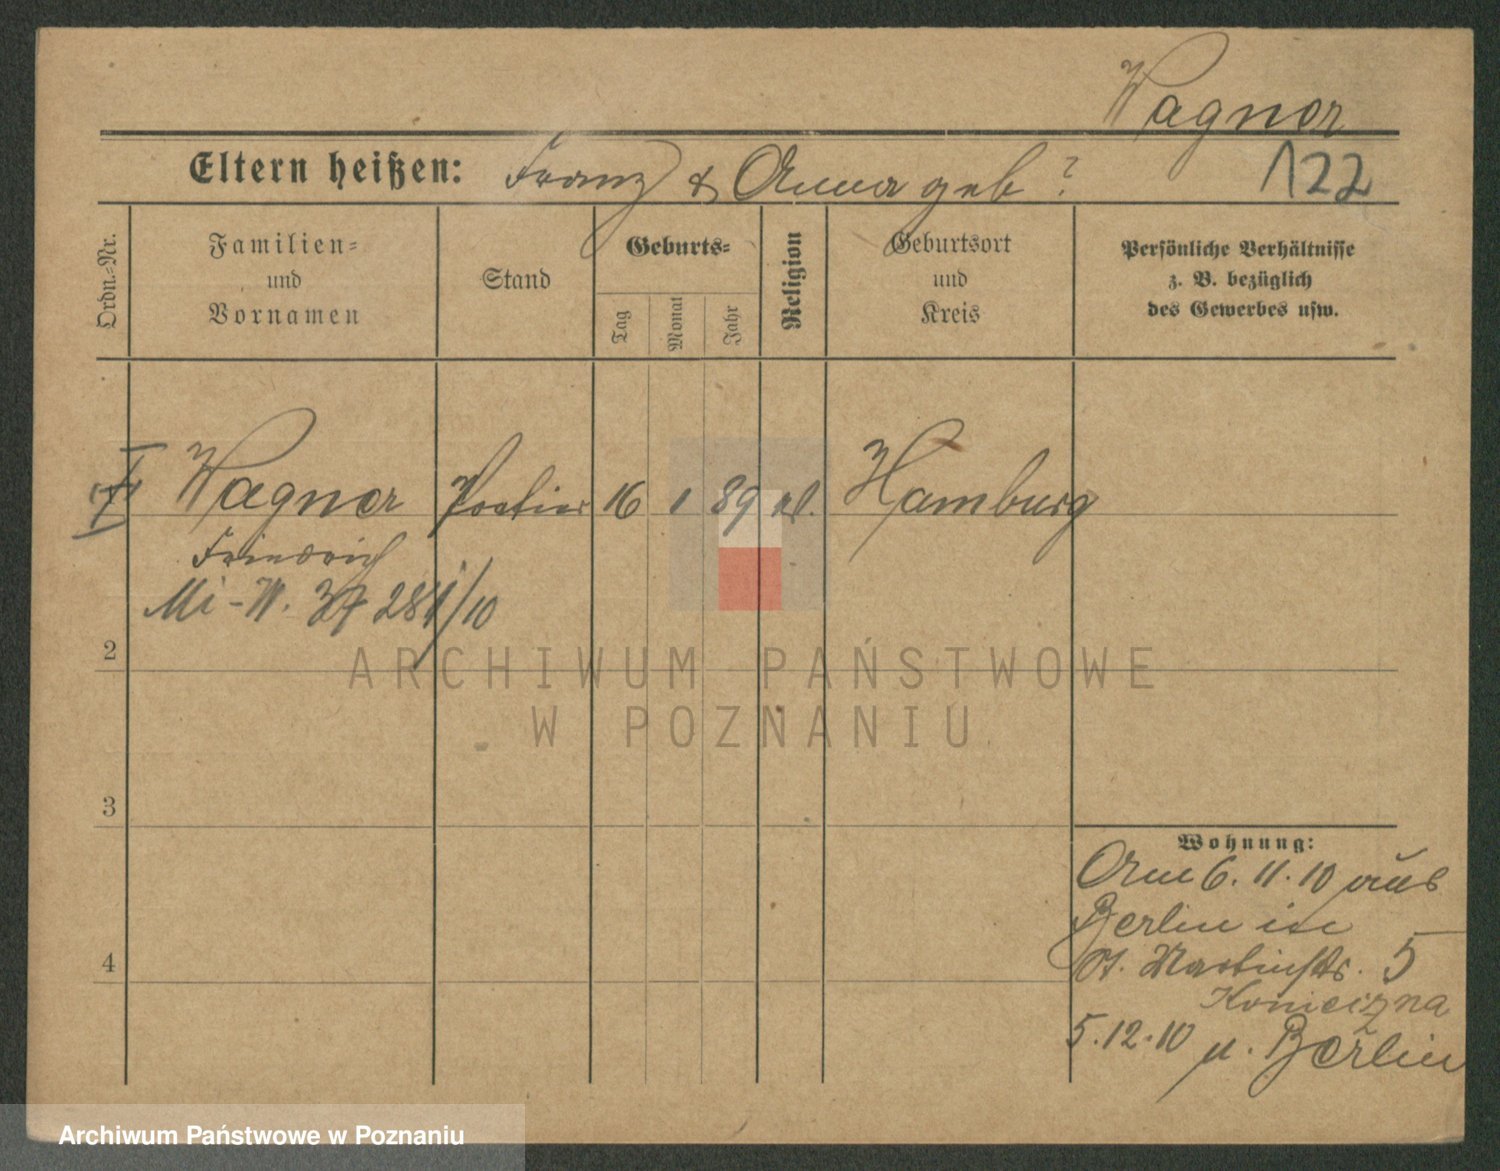 Wagner
Eltern heißen: Franz & Anna geb ?
122
Ordn.-Nr.
Familien-
und
Vornamen
Stand
Geburts-
Tag
Monat
Jahr
Religion
Geburtsort
und
Kreis
Persönliche Verhältnisse
z. B. bezüglich
des Gewerbes usw.
Wagner Portier 16 1 89 Hamburg
Friedrich
Mi-W. 37 281/10
2
ARCHIWUM PAŃSTWOWE
W POZNANIU
3
Wohnung:
Am 6. 11. 10 aus
Berlin in
4
St. Martinstr. 5
Konieczna
5.12.10 n. Berlin
Archiwum Państwowe w Poznaniu